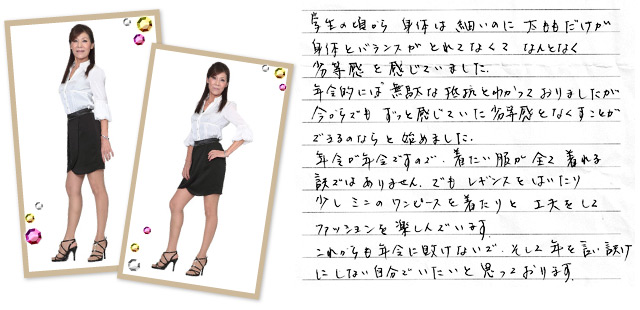 学生の頃から 身体は 細いのに 太ももだけが
身体とバランスが とれてなくて なんとなく
劣等感を感じていました.
年令的には 無駄な抵抗とわかっておりましたが
今からでも ずっと感じていた劣等感をなくすことが
できるのならと 始めました.
年令が年令ですので、着たい服が全て着れる
訳ではありません. でも レギンスをはいたり
少しミニのワンピースを着たりと 工夫をして
ファッションを楽しんでいます.
これからも年令に負けないで、そして年を言い訳け
にしない自分でいたいと思っております.